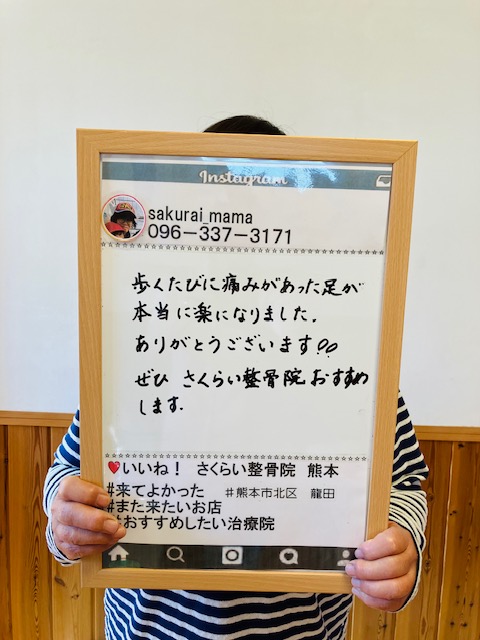 Instagram
sakurai_mama
096-337-3171
歩くたびに痛みがあった足が
本当に楽になりました.
ありがとうございます!!
ぜひ さくらい整骨院おすすめ
します.
❤いいね! さくらい整骨院 熊本
#来てよかった #熊本市北区 龍田
#また来たいお店
#おすすめしたい治療院